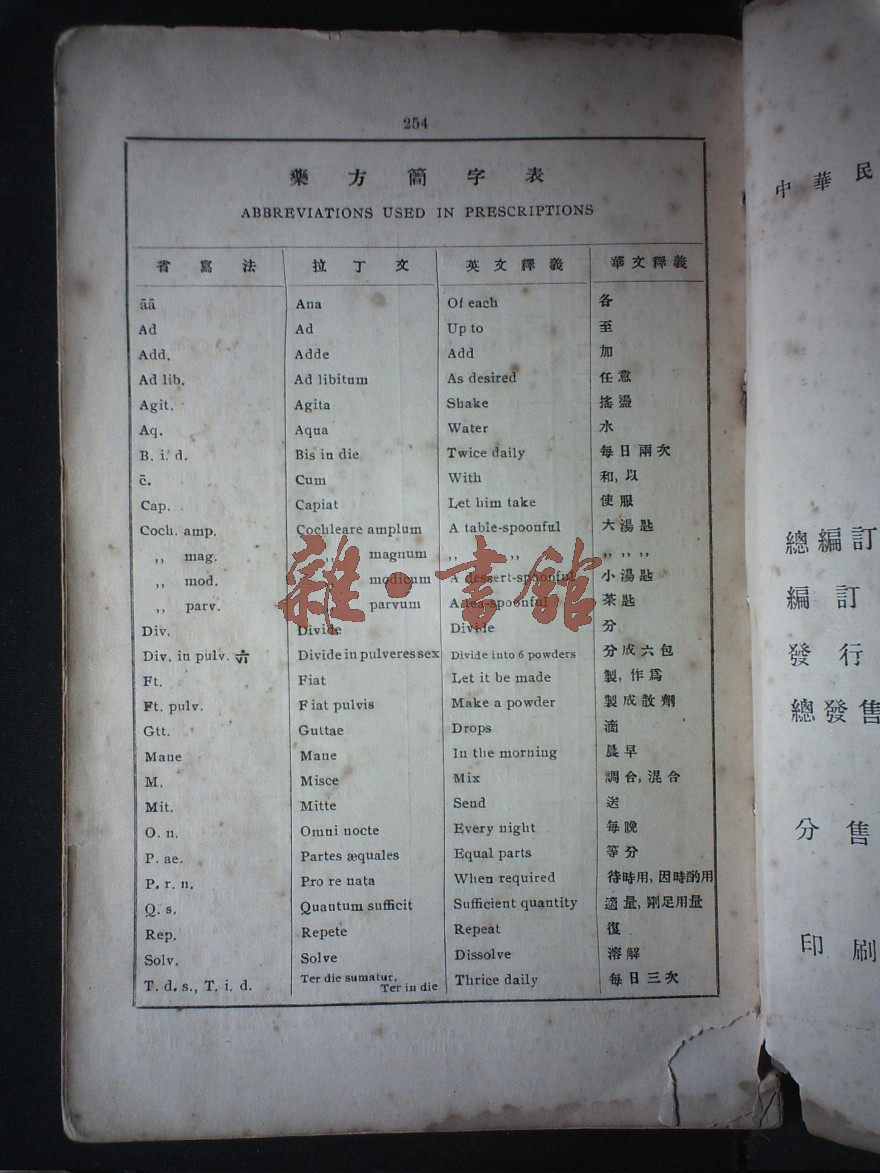 254
藥方簡字表
ABBREVIATIONS USED IN PRESCRIPTIONS
省寫法 拉丁文 英文釋義 華文釋義
āā Ana Of each 各
Ad Ad Up to 至
Add. Adde Add 加
Ad lib. Ad libitum As desired 任意
Agit. Agita Shake 搖盪
Aq. Aqua Water 水
B. i. d. Bis in die Twice daily 每日兩次
c̄. Cum With 和, 以
Cap. Capiat Let him take 使服
Coch. amp. Cochleare amplum A table-spoonful 大湯匙
,, mag. ,, magnum ,, ,, ,, ,, ,,
,, mod. ,, modicum A dessert-spoonful 小湯匙
,, parv. ,, parvum A tea-spoonful 茶匙
Div. Divide Divide 分
Div. in pulv. Divide in pulveres sex Divide into 6 powders 分成六包
Ft. Fiat Let it be made 製, 作爲
Ft. pulv. Fiat pulvis Make a powder 製成散劑
Gtt. Guttae Drops 滴
Mane Mane In the morning 晨早
M. Misce Mix 調合, 混合
Mit. Mitte Send 送
O. n. Omni nocte Every night 每晚
P. ae. Partes æquales Equal parts 等分
P. r. n. Pro re nata When required 待時用, 因時酌用
Q. s. Quantum sufficit Sufficient quantity 適量, 剛足用量
Rep. Repete Repeat 復
Solv. Solve Dissolve 溶解
T. d. s., T. i. d. Ter die sumatur, Ter in die Thrice daily 每日三次
雜·書館
中華民
總編訂
編訂
發行
總發售
分售
印刷